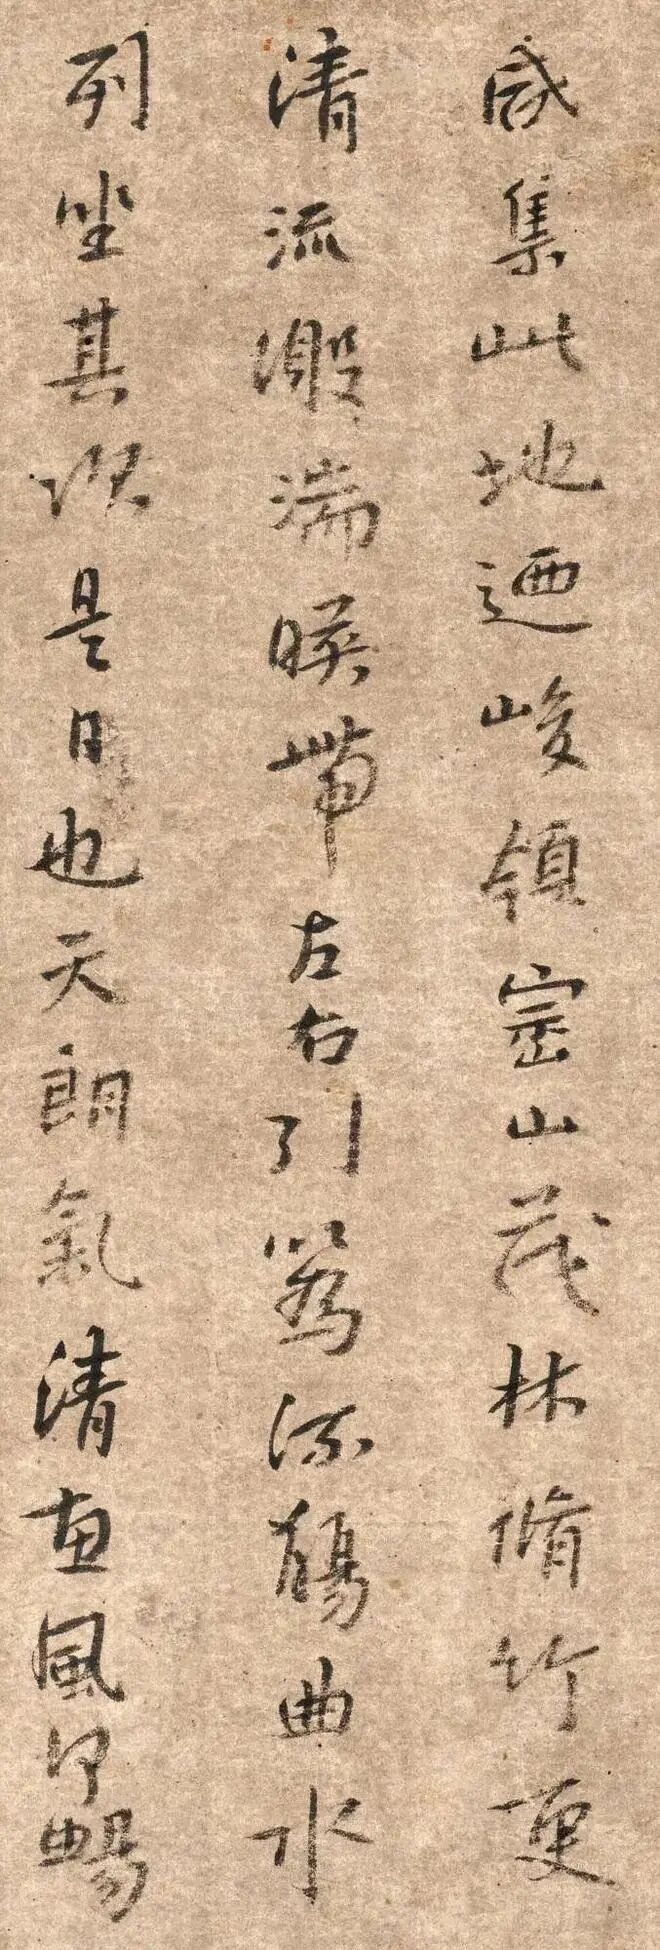 咸集此地迺峻領崇山茂林脩竹更
清流激湍暎帶左右引以爲流觴曲水
列坐其次是日也天朗氣清惠風和暢